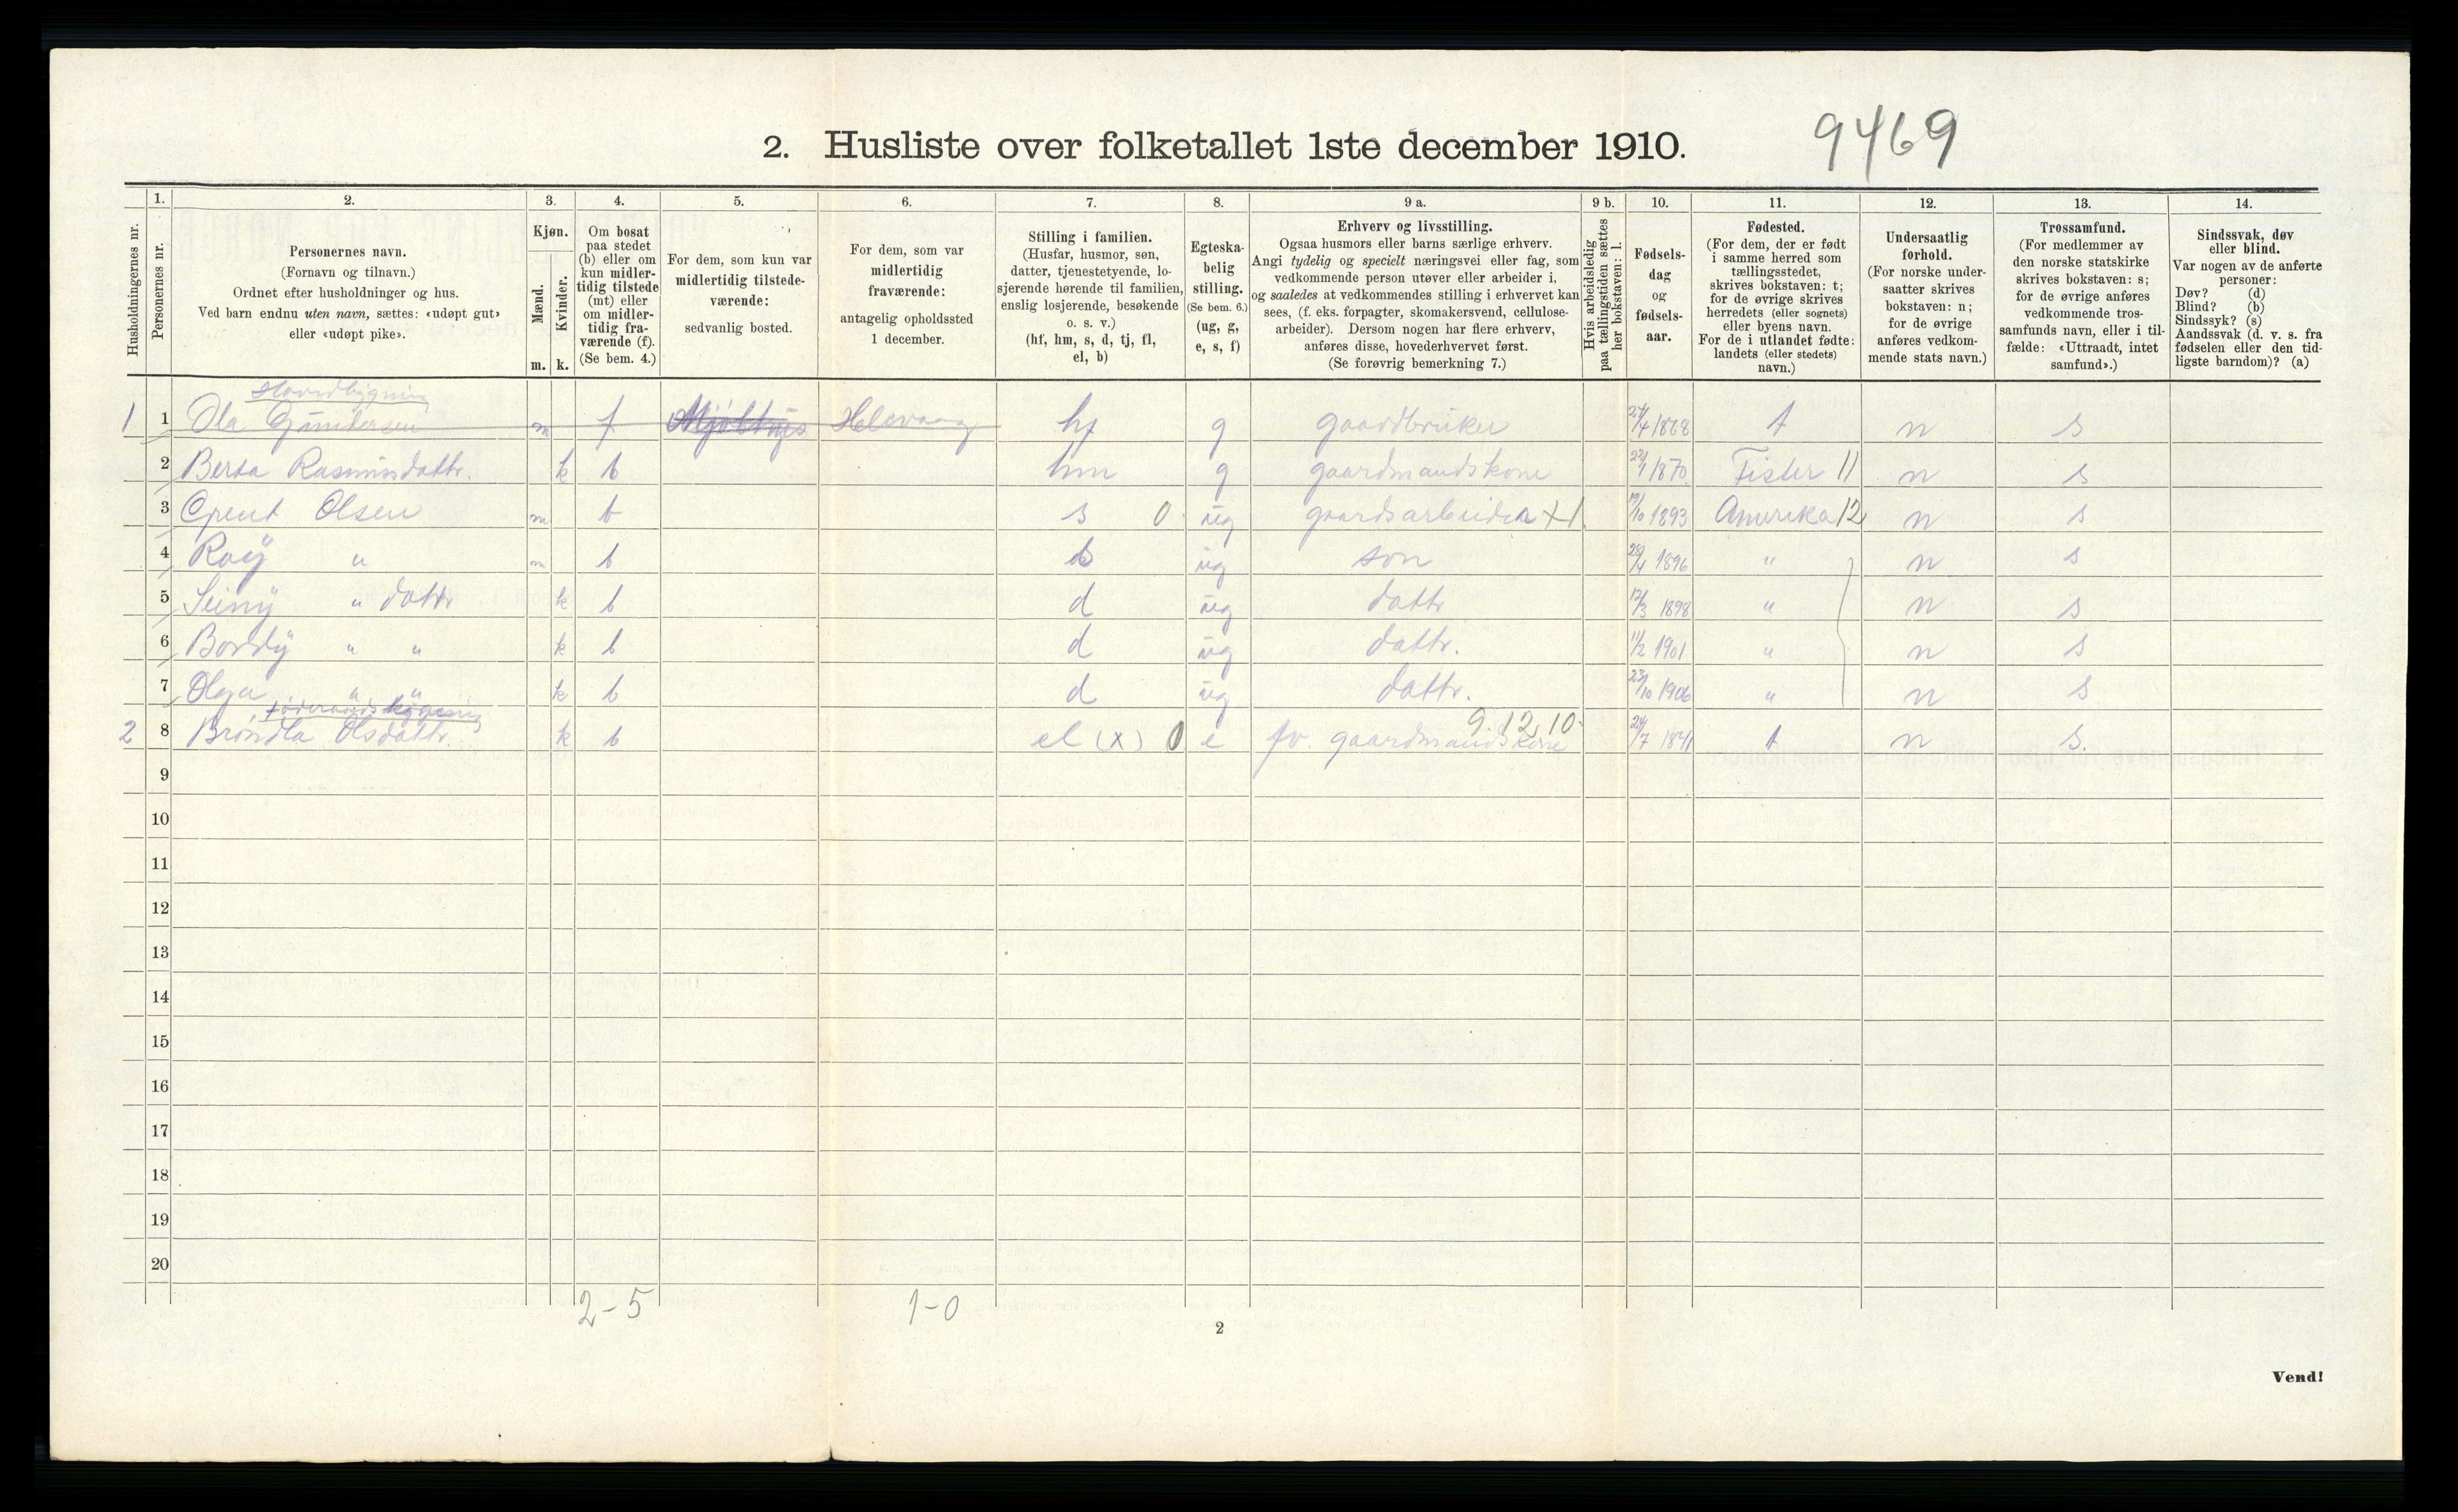 2. Husliste over folketallet 1ste december 1910.
9469
Husholdningernes nr.
1.
Personernes nr.
2.
Personernes navn.
(Fornavn og tilnavn.)
Ordnet efter husholdninger og hus.
Ved barn endnu uten navn, sættes: «udøpt gut»
eller «udøpt pike».
3.
Kjøn.
Mænd.
Kvinder.
m. k.
4.
Om bosat
paa stedet
(b) eller om
kun midler-
tidig tilstede
(mt) eller
om midler-
tidig fra-
værende (f).
(Se bem. 4.)
5.
For dem, som kun var
midlertidig tilstede-
værende:
sedvanlig bosted.
6.
For dem, som var
midlertidig
fraværende:
antagelig opholdssted
1 december.
7.
Stilling i familien.
(Husfar, husmor, søn,
datter, tjenestetyende, lo-
sjerende hørende til familien,
enslig losjerende, besøkende
o. s. v.)
(hf, hm, s, d, tj, fl,
el, b)
8.
Egteska-
belig
stilling.
(Se bem. 6.)
(ug, g,
e, s, f)
9 a.
Erhverv og livsstilling.
Ogsaa husmors eller barns særlige erhverv.
Angi tydelig og specielt næringsvei eller fag, som
vedkommende person utøver eller arbeider i,
og saaledes at vedkommendes stilling i erhvervet kan
sees, (f. eks. forpagter, skomakersvend, cellulose-
arbeider). Dersom nogen har flere erhverv,
anføres disse, hovederhvervet først.
(Se forøvrig bemerkning 7.)
9 b.
Hvis arbeidsledig
paa tællingstiden sættes
her bokstaven: l.
10.
Fødsels-
dag
og
fødsels-
aar.
11.
Fødested.
(For dem, der er født
i samme herred som
tællingsstedet,
skrives bokstaven: t;
for de øvrige skrives
herredets (eller sognets)
eller byens navn.
For de i utlandet fødte:
landets (eller stedets)
navn.)
12.
Undersaatlig
forhold.
(For norske under-
saatter skrives
bokstaven: n;
for de øvrige
anføres vedkom-
mende stats navn.)
13.
Trossamfund.
(For medlemmer av
den norske statskirke
skrives bokstaven: s;
for de øvrige anføres
vedkommende tros-
samfunds navn, eller i til-
fælde: «Uttraadt, intet
samfund».)
14.
Sindssvak, døv
eller blind.
Var nogen av de anførte
personer:
Døv? (d)
Blind? (b)
Sindssyk? (s)
Aandssvak (d. v. s. fra
fødselen eller den tid-
ligste barndom)? (a)
Hovedbygning
1 1 Ola m f hf g gaardbruker 1868 t n s
2 Berta Rasmusdattr. k b hm g gaardmandskone 1870 Fister 11 n s
3 Olsen m b s 0 ug gaardsarbeider +1 1893 Amerika 12 n s
4 Roy " m b s ug son 1896 " n s
5 " dattr k b d ug dattr 12/3 1898 " n s
6 Bordy " " k b d ug dattr. 11/2 1901 " n s
7 Olga " " k b d ug dattr. 23/10 1906 " n s
9.12.10
2 8 Olsdattr. k b el (x) 0 e fv. gaardmandskone 24/7 1841 t n s.
9
10
11
12
13
14
15
16
17
18
19
20
2-5 1-0
2
Vend!